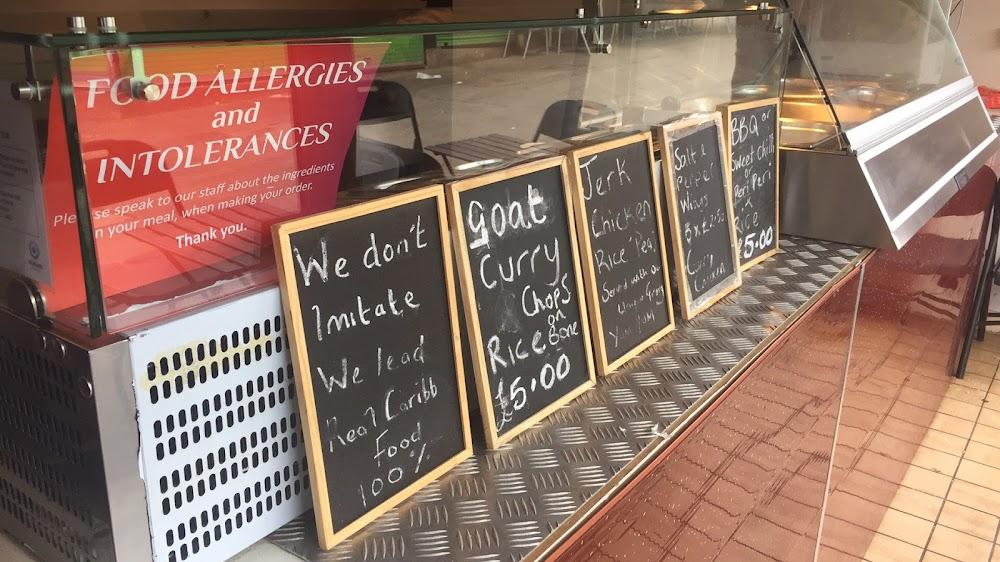 FOOD ALLERGIES
and
INTOLERANCES
Please speak to our staff about the ingredients
in your meal, when making your order.
Thank you.
We don't
Imitate
We lead
Real Caribb
Food
100%
Goat
Curry
Chops
on
Bone
Rice
£5.00
Jerk
Chicken
Rice Pea
Served with
Yum Yum
Salt &
Pepper
Wings
Curry
Chicken
BBQ or
Sweet Chilli
or
Peri Peri
Rice
£5.00